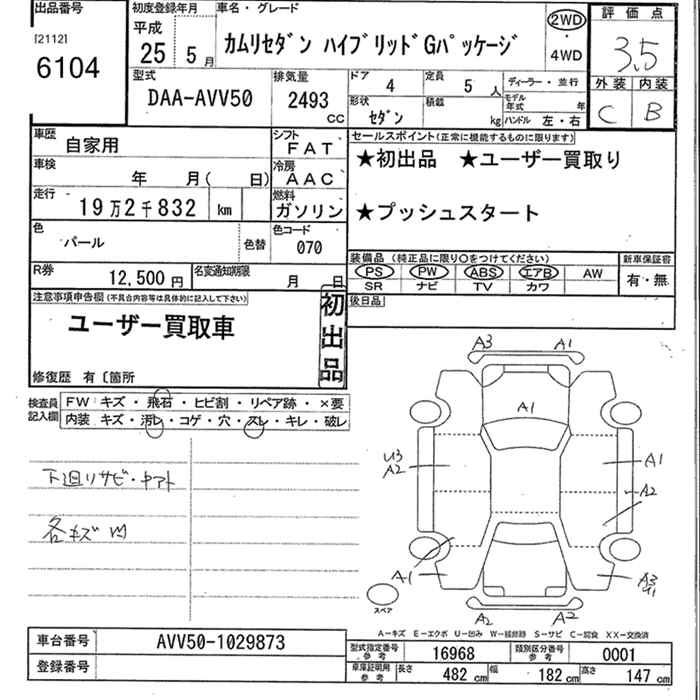 出品番号
[2112]
6104
初度登録年月
平成
25 5月
車名・グレード
カムリセダン ハイブリッドGパッケージ
2WD
・
4WD
評価点
3.5
外装 内装
C B
型式
DAA-AVV50
排気量
2493
cc
ドア 4
定員 5人
形状 セダン
積載 kg
ディーラー・並行
モデル年式 年
ハンドル 左・右
車歴 自家用
シフト FAT
車検 年 月( 日)
冷房 AAC
走行 19万2千832 km
燃料 ガソリン
色 パール
色替
色コード 070
R券 12,500円
名変通知期限 月 日
セールスポイント(正常に機能するものに限ります)
★初出品 ★ユーザー買取り
★プッシュスタート
装備品(純正品に限り○をつけてください)
PS PW ABS エアB AW
SR ナビ TV カワ
新車保証書
有・無
後日品
注意事項申告欄(不具合内容等は具体的に記入して下さい)
ユーザー買取車
初出品
修復歴 有〔箇所
検査員記入欄
FW: キズ・飛石・ヒビ割・リペア跡・×要
内装: キズ・汚レ・コゲ・穴・スレ・キレ・破レ
下廻りサビ・
各キズ凹
A3 A1
A1
U3
A2
A1
A2
A1
A3
A2 A2
スペア
A-キズ E-エクボ U-凹み W-補修跡 S-サビ C-腐食 XX-交換済
車台番号 AVV50-1029873
登録番号
型式指定番号参考 16968
類別区分番号参考 0001
車庫証明用参考 長さ 482cm 幅 182cm 高さ 147cm